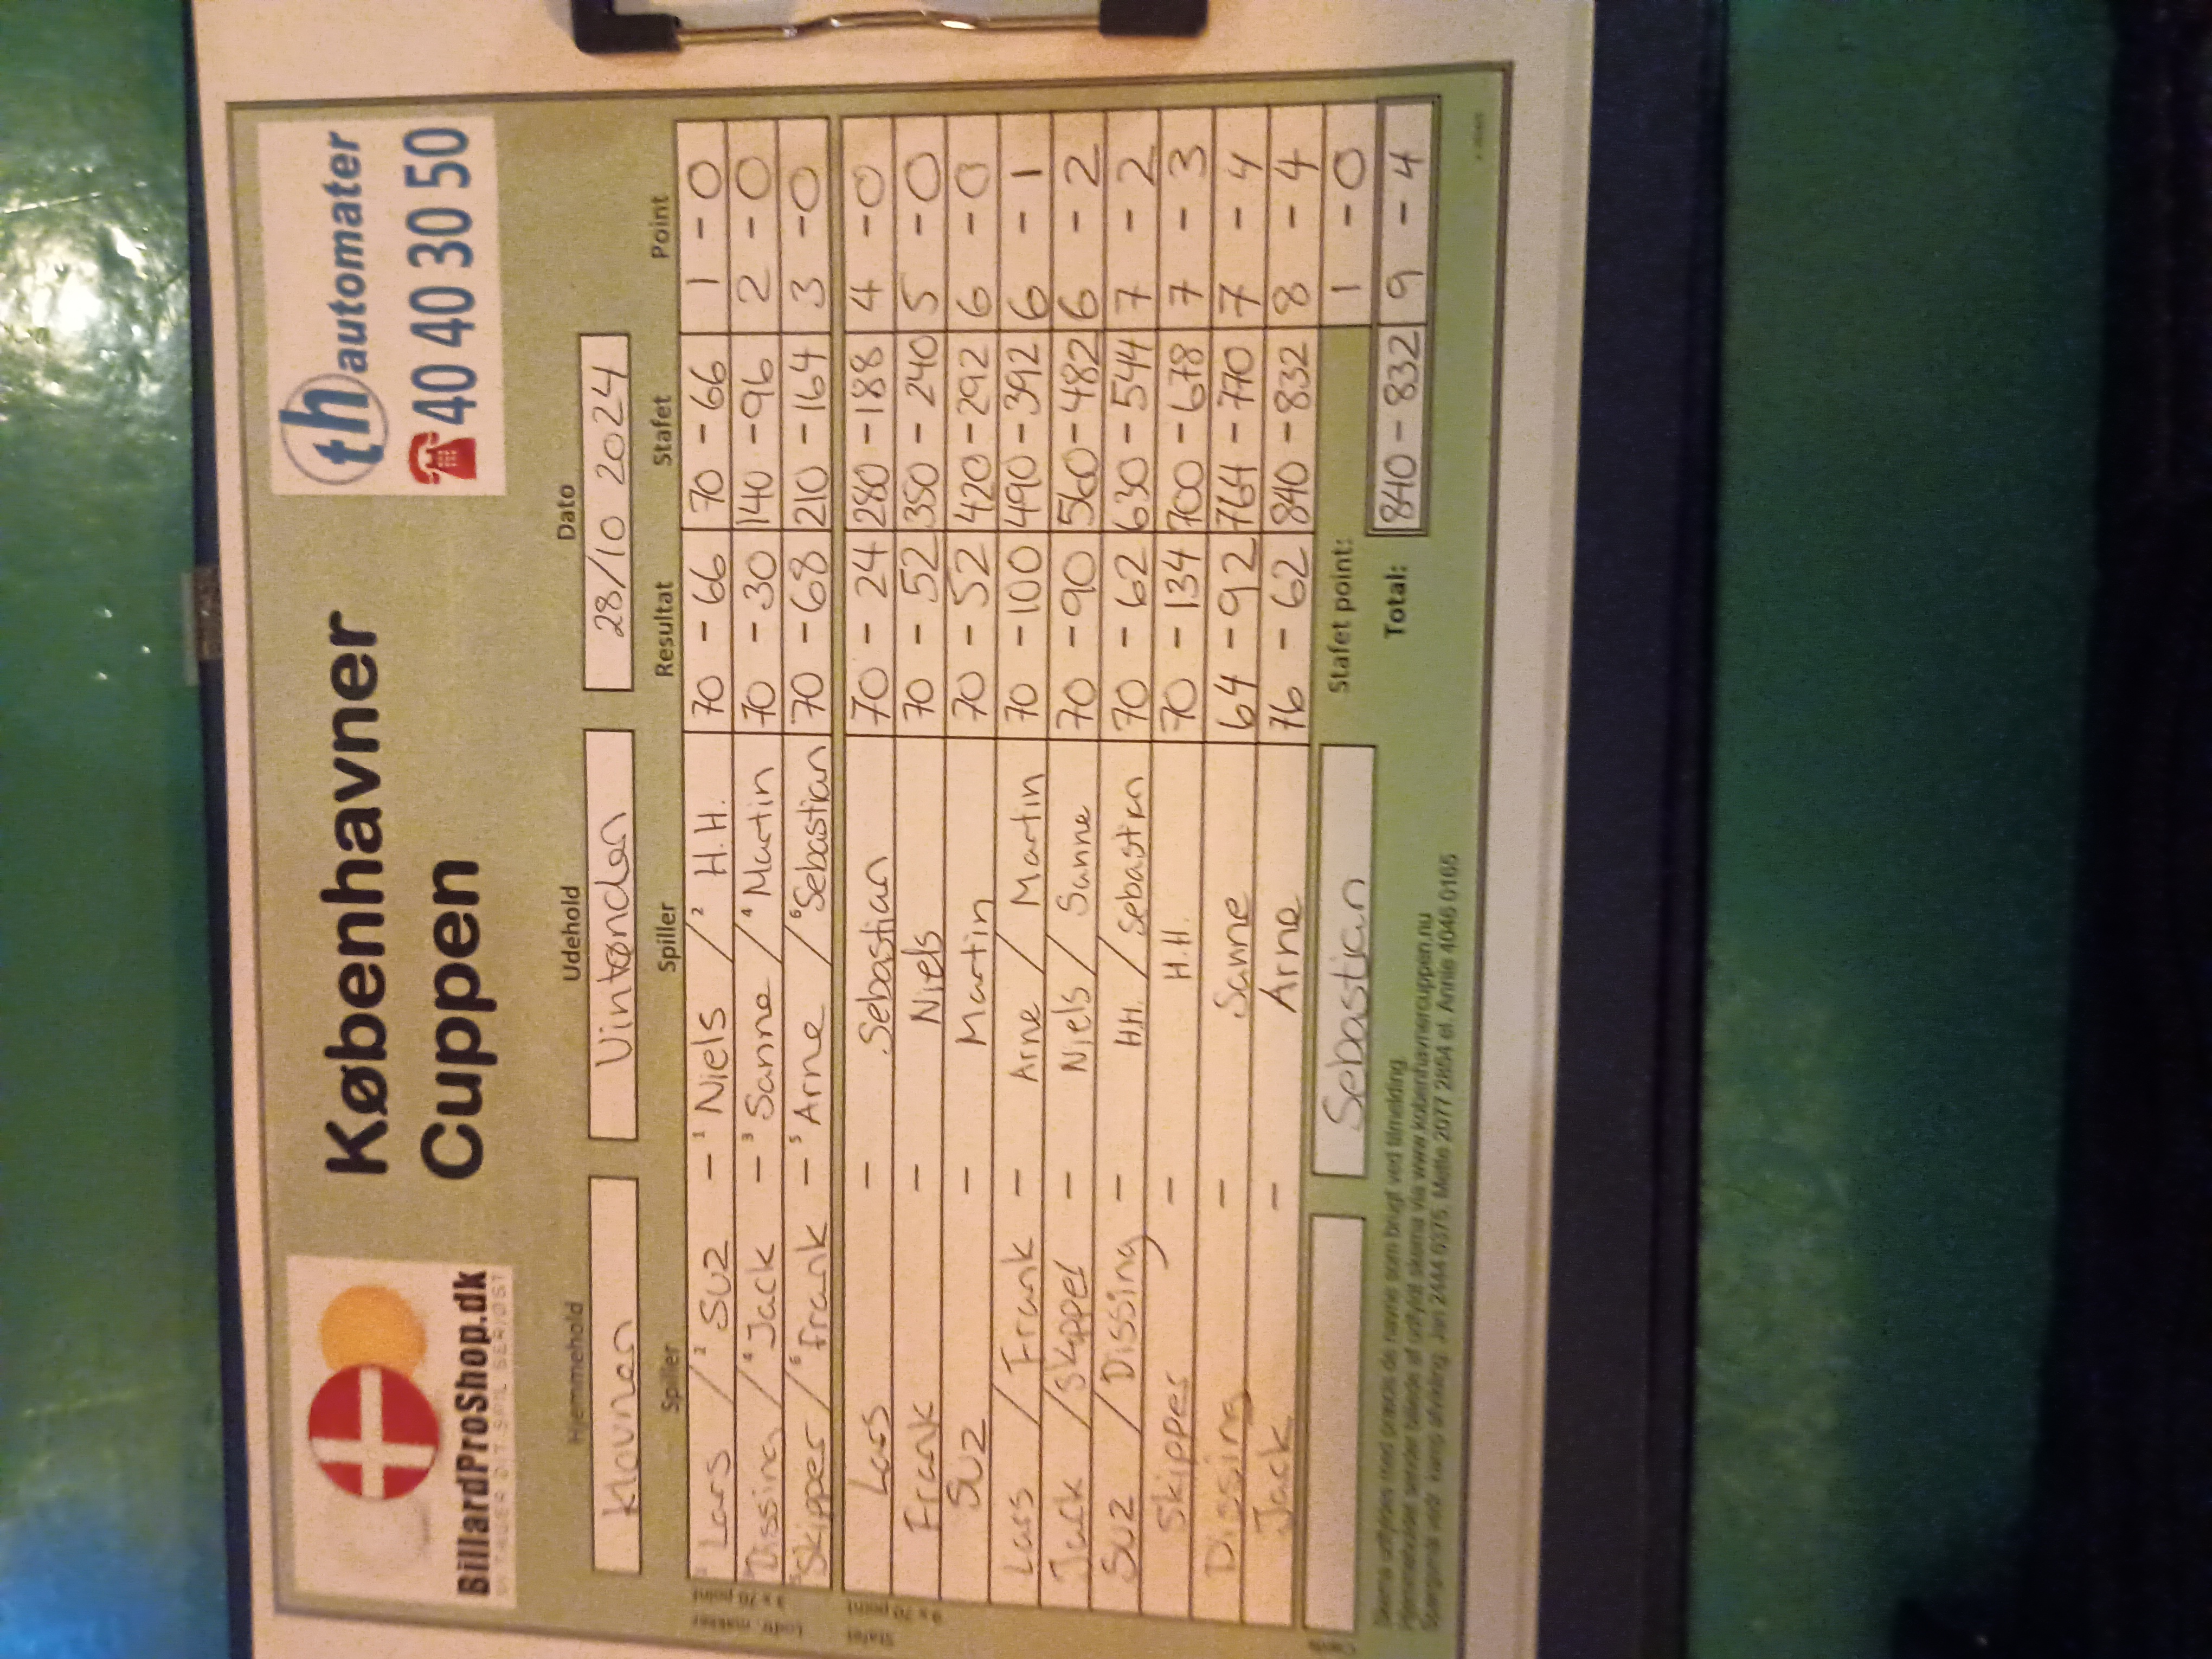 BillardProShop.dk
VI TAGER DIT SPIL SERIØST
Københavner
Cuppen
th automater
40 40 30 50
Hjemmehold Udehold Dato
Klovnen Vintønden 28/10 2024
Spiller Spiller Resultat Stafet Point
Lodtr. makker
3 x 70 point
1 Lars / 2 SUZ - 1 Niels / 2 H.H. 70 - 66 70 - 66 1 - 0
Dissing / 4 Jack - 3 Sanne / 4 Martin 70 - 30 140 - 96 2 - 0
Skipper / 6 Frank - 5 Arne / 6 Sebastian 70 - 68 210 - 164 3 - 0
Stafet
9 x 70 point
Lars - Sebastian 70 - 24 280 - 188 4 - 0
Frank - Niels 70 - 52 350 - 240 5 - 0
SUZ - Martin 70 - 52 420 - 292 6 - 0
Lars / Frank - Arne / Martin 70 - 100 490 - 392 6 - 1
Jack / Skipper - Niels / Sanne 70 - 90 560 - 482 6 - 2
SUZ / Dissing - H.H. / Sebastian 70 - 62 630 - 544 7 - 2
Skipper - H.H. 70 - 134 700 - 678 7 - 3
Dissing - Sanne 64 - 92 764 - 770 7 - 4
Jack - Arne 76 - 62 840 - 832 8 - 4
Sebastian Stafet point: 1 - 0
Total: 840 - 832 9 - 4
Skema udfyldes med præcis de navne som brugt ved tilmelding.
Hjemmeholdet sender billede af udfyldt skema via www.kobenhavnercuppen.nu
Spørgsmål vedr. kamp afvikling. Jan 2444 0375. Mette 2077 2854 el. Annie 4046 0165